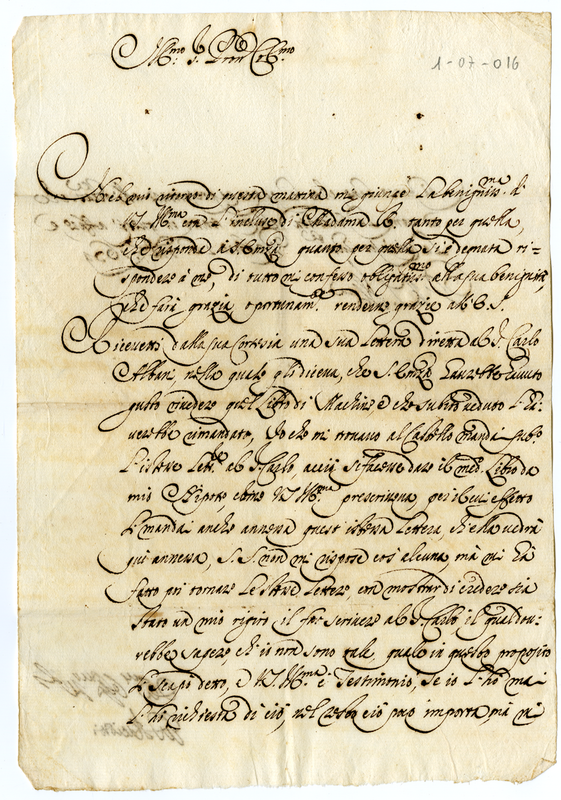 Ill.mo S. Pron Col.mo
1-07-016
di questa mattina mi giunse la benignis.ma di
V.S. Ill.ma con l'inclusa di Madama tanto per quella,
che risponde a S. Ecnza quanto per quella si è degnata ri=
spondere à me, di tutto mi confesso obligatis.mo alla sua benignità,
che farà grazia oportunam.te renderne grazie all' E. S.
Ricevetti dalla sua Cortesia una sua Lettera diretta al S. Carlo
Albani, nella quale gli diceva, che S. Ecnza havrebbe avuto
gusto vedere quel Libro di Machine, e che subito veduto l'ha=
verebbe rimandato, Io che mi trovavo al Castello mandai sub.o
l'istessa Lett.a al S. Carlo, acciò si facesse dare il med.o Libro da
mio Nipote, come V.S. Ill.ma prescriveva per il cui effetto
li mandai anche annessa quest' istessa Lettera, ch' ella vedrà
qui annessa, S.S. non mi rispose cosa alcuna, mà mi hà
fatto poi tornare le stesse Lettere, con mostrar di credere sia
stato un mio rigiro il far scrivere al S. Carlo, il qual dou=
rebbe sapere ch' io non sono tale, quale in questo proposito
detto, e V.S. Ill.ma è Testimonio, se io l'hò mai
richiesta di ciò, nel resto ciò poco importa, mà mi